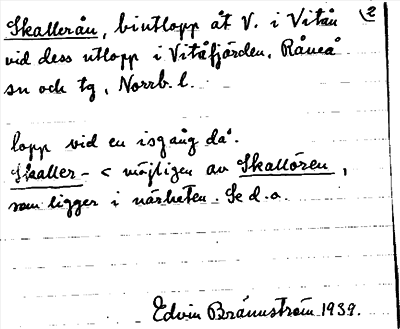 Skallerån, biutlopp åt V. i Vitån 2
vid dess utlopp i Vitåfjärden, Råneå
sn och tg, Norrb. l.
lopp vid en isgång då.
Skaller- < möjligen av Skallören,
som ligger i närheten. Se d.o.
Edvin Brännström 1939.